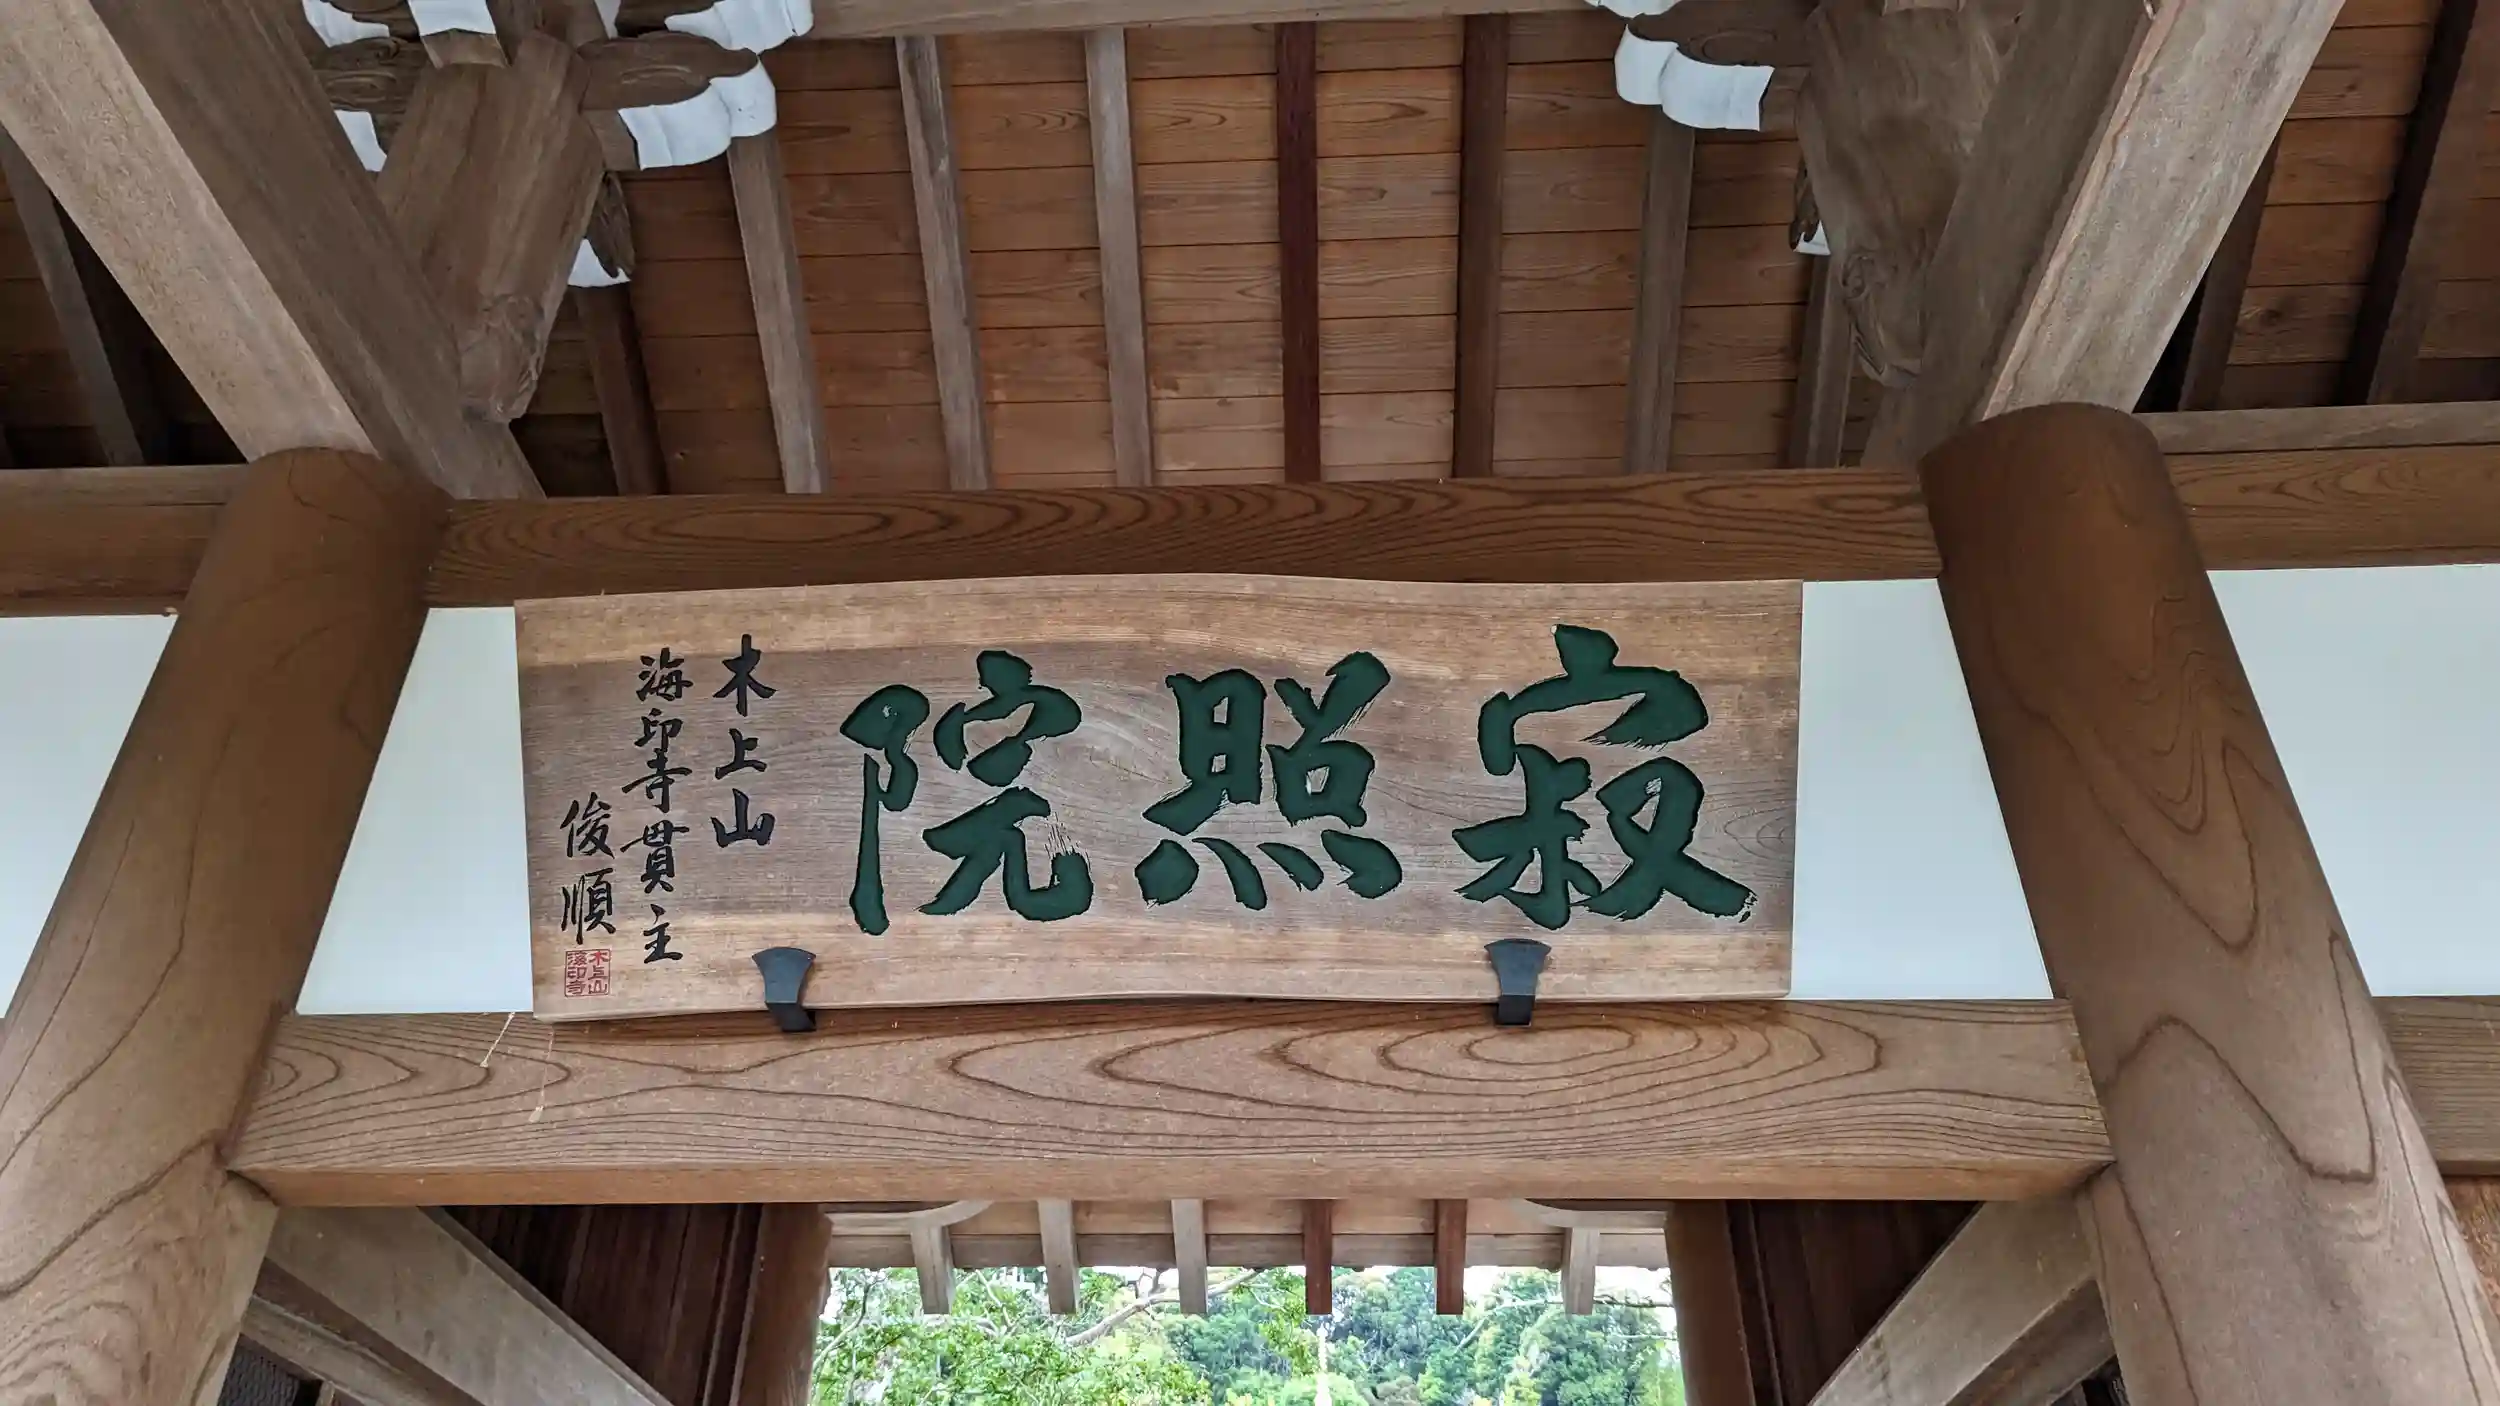 寂照院
木上山
海印寺貫主
俊順
木上山
海印寺